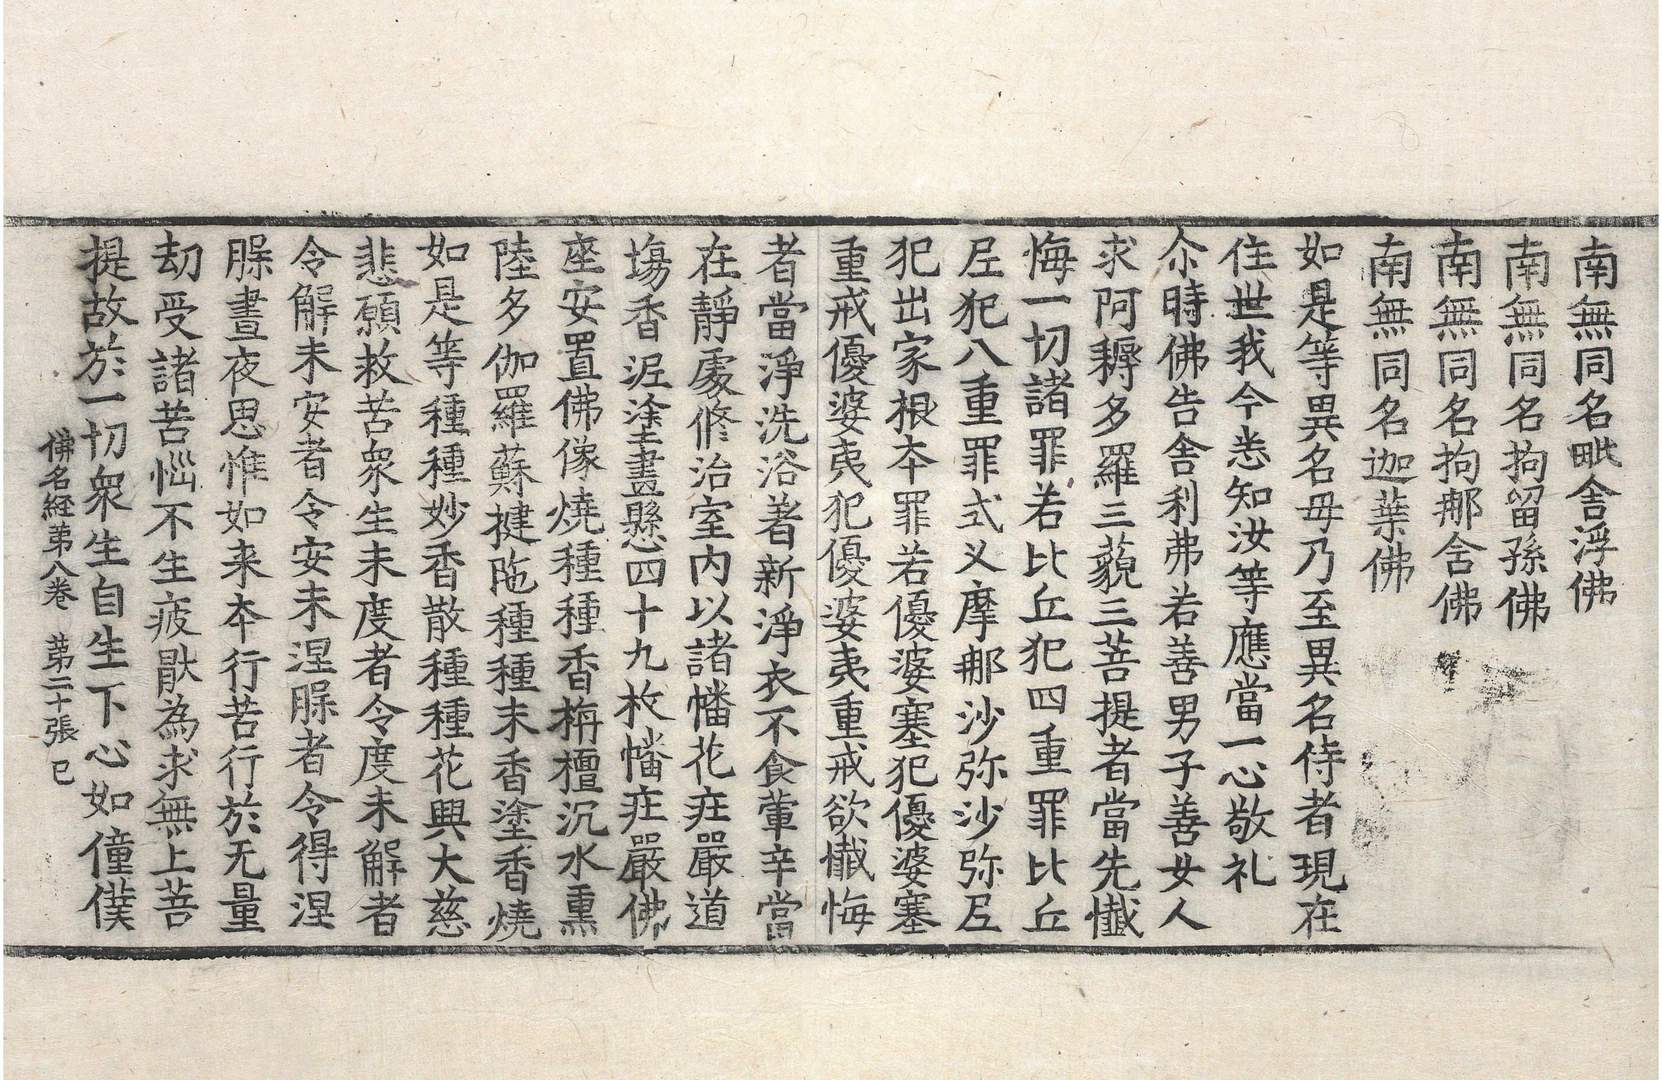 南無同名毗舍浮佛
南無同名拘留孫佛
南無同名拘那舍佛
南無同名迦葉佛
如是等異名毋乃至異名侍者現在
住世我今悉知汝等應當一心敬礼
尒時佛告舍利弗若善男子善女人
求阿耨多羅三藐三菩提者當先懴
悔一切諸罪若比丘犯四重罪比丘
尼犯八重罪式叉摩那沙弥沙弥尼
犯出家根夲罪若優婆塞犯優婆塞
重戒優婆夷犯優婆夷重戒欲懴悔
者當淨洗浴著新淨衣不食葷辛當
在靜處修治室内以諸幡花㽵嚴道
塲香泥塗畫懸四十九枚幡㽵嚴佛
座安置佛像燒種種香栴檀沉水熏
陸多伽羅蘇揵陁種種末香塗香燒
如是等種種妙香散種種花興大慈
悲願救苦衆生未度者令度未解者
令解未安者令安未涅脲者令得涅
脲晝夜思惟如来夲行苦行於无量
劫受諸苦惱不生疲猒為求無上菩
提故於一切衆生自生下心如僮僕
佛名経苐八卷 苐二十張 巳